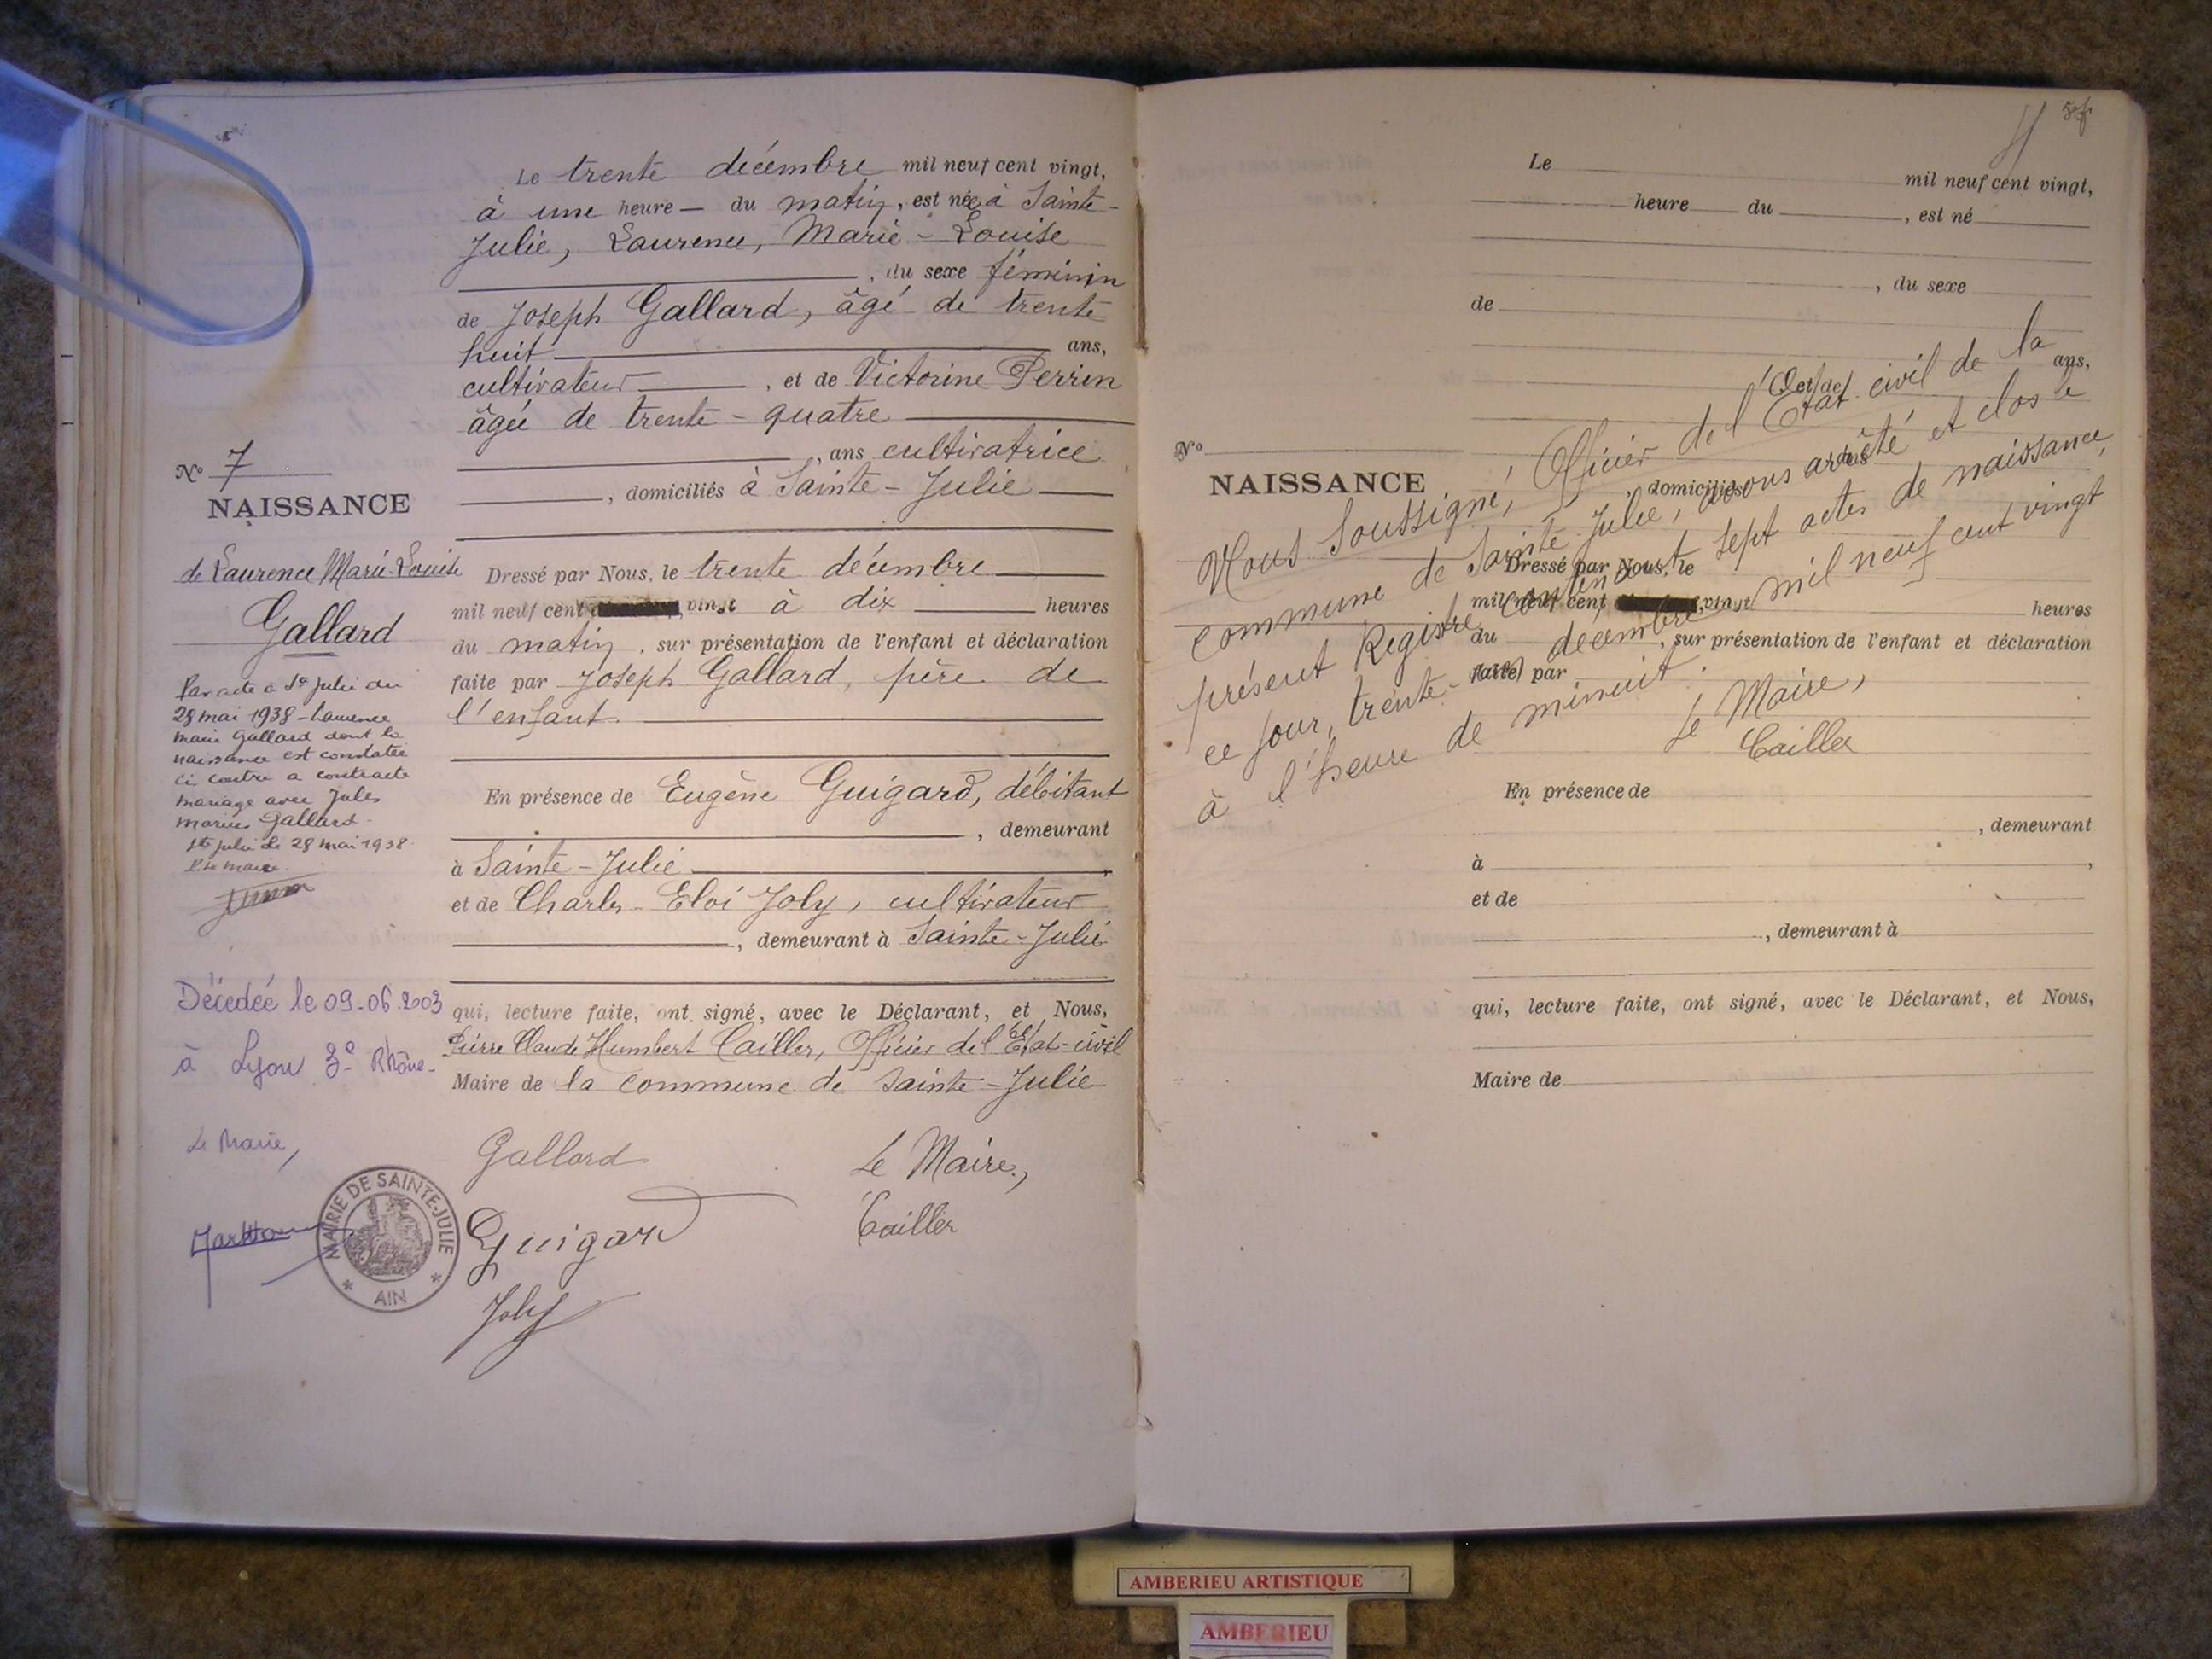 Le trente décembre mil neuf cent vingt,
à une heure — du matin, est née à Sainte-
Julie, Laurence, Marie-Louise
, du sexe féminin
de Joseph Gallard, âgé de trente
huit ans,
cultivateur, et de Victorine Perrin
âgée de trente-quatre
, ans cultivatrice
, domiciliés à Sainte-Julie
Dressé par Nous, le trente décembre
mil neuf cent, vingt à dix heures
du matin, sur présentation de l'enfant et déclaration
faite par Joseph Gallard, père de
l'enfant.
En présence de Eugène Guigard, débitant
, demeurant
à Sainte-Julie,
et de Charles-Eloi Joly, cultivateur
, demeurant à Sainte-Julie
qui, lecture faite, ont signé, avec le Déclarant, et Nous,
Pierre Claude Humbert Cailler, Officier de l'Etat-civil
Maire de la commune de Sainte-Julie
Gallard
Le Maire,
Guigard
Cailler
Joly
No 7
NAISSANCE
de Laurence Marie-Louise
Gallard
Par acte à Ste Julie du
28 mai 1938 - Laurence
Marie Gallard dont la
naissance est constatée
ci contre a contracté
mariage avec Jules
Marius Gallard -
Ste Julie le 28 mai 1938
Le maire
Décédée le 09-06-2003
à Lyon 3e Rhône-
Le Maire,
MAIRIE DE SAINTE-JULIE
* AIN *
Le mil neuf cent vingt,
heure du, est né
, du sexe
de
ans,
et de
No
NAISSANCE
, domiciliés
Dressé par Nous, le
mil neuf cent, vingt heures
du, sur présentation de l'enfant et déclaration
faite par
En présence de
, demeurant
à,
et de
, demeurant à
qui, lecture faite, ont signé, avec le Déclarant, et Nous,
Maire de
Nous soussigné, Officier de l'Etat civil de la
commune de Sainte Julie, avons arrêté et clos le
présent Registre contenant sept actes de naissance,
ce jour, trente-un décembre mil neuf cent vingt
à l'heure de minuit.
Le Maire,
Cailler
AMBERIEU ARTISTIQUE
AMBERIEU